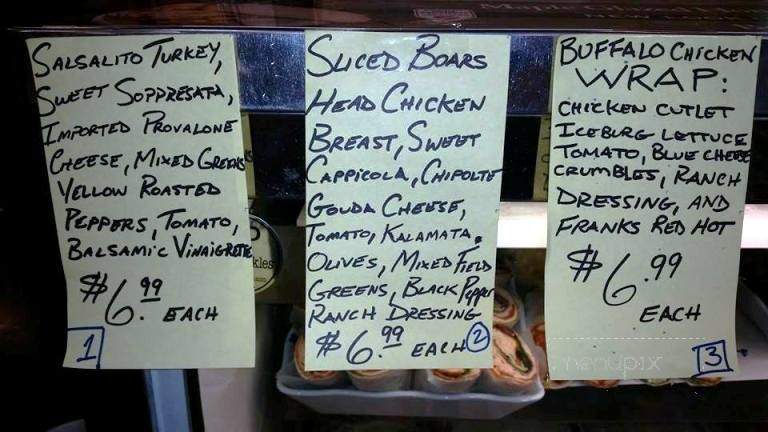 SALSALITO TURKEY,
SWEET SOPPRESATA,
IMPORTED PROVALONE
CHEESE, MIXED GREENS
YELLOW ROASTED
PEPPERS, TOMATO,
BALSAMIC VINAIGRETE
$6.99 EACH
1
SLICED BOARS
HEAD CHICKEN
BREAST, SWEET
CAPPICOLA, CHIPOLTE
GOUDA CHEESE,
TOMATO, KALAMATA.
OLIVES, MIXED FIELD
GREENS, BLACK PEPPER
RANCH DRESSING
$6.99 EACH 2
BUFFALO CHICKEN
WRAP:
CHICKEN CUTLET
ICEBURG LETTUCE
TOMATO, BLUE CHEESE
CRUMBLES, RANCH
DRESSING, AND
FRANKS RED HOT
$6.99
EACH
3
menupix
kles